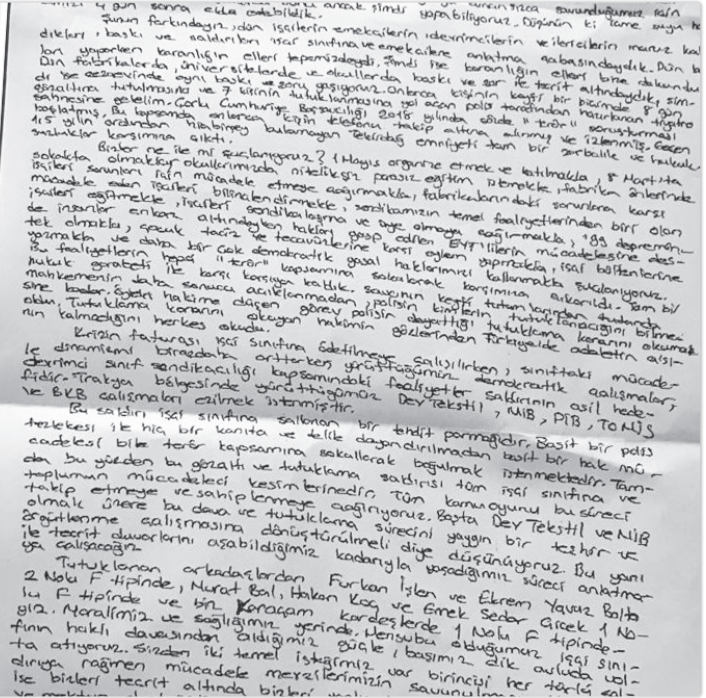 ancak şimdi yapabiliyoruz. Düşünün ki
4 gün sonra elde edebildik.
Şunun farkındayız, dün işçilerin emekçilerin, devrimcilerin ve ilericilerin maruz kal
dıkları, baskı ve saldırıları işçi sınıfına ve emekçilere anlatma çabasındaydık. Dün
ları yaparken karanlığın elleri tepemizdeydi, şimdi ise karanlığın elleri bize dokundu
Dün fabrikalarda, üniversitelerde ve okullarda baskı ve zor ile tecrit altındaydık, şim-
di ise cezaevinde aynı baskı ve zoru yaşıyoruz. Onlarca kişinin keyfi bir biçimde 8 gün
gözaltına tutulmasına ve 7 kişinin tutuklanmasına yol açan polis tarafından hazırlanan tiyatro
sahnesine gelelim. Çorlu Cumhuriyet Başsavcılığı 2018 yılında sözde "terör" soruşturması
başlatmış. Bu kapsamda onlarca kişin telefonu takip altına alınmış ve izlenmiş. Geçen
1.5 yılın ardından hiçbirşey bulamayan Tekirdağ emniyeti tam bir zorbalık ve hukuk-
suzluklar karşımıza çıktı.
Bizler ne ile mi suçlanıyoruz? 1 Mayıs organize etmek ve katılmakla, 8 Mart'ta
sokakta olmakla, okullarımızda nitelikli parasız eğitim istemekle, fabrika önlerinde
işçileri sorunları için mücadele etmeye çağırmakla, fabrikalarındaki sorunlara karşı
mücadele eden işçileri bilinçlendirmekle, sendikamızın temel faaliyetlerinden biri olan
işçileri eğitmekle, işçileri sendikalaşma ve üye olmaya çağırmakla, '99 depremin-
de insanlar enkaz altındayken hakları gasp edilen EYT'lilerin mücadelesine des-
tek olmakla, çocuk taciz ve tecavüzlerine karşı eylem yapmakla, işçi bültenlerine
yazmakla ve daha bir çok demokratik yasal haklarımızı kullanmakla suçlanıyoruz.
Bu faaliyetlerin hepsi "terör" kapsamına sokularak karşımıza çıkarıldı. Tam bir
hukuk garabeti ile karşı karşıya kaldık. Savcının keyfi tutumlarından tutunda
mahkemenin daha sonucu açıklanmadan, polisin kimlerin tutuklanacağını bilmes
sine kadar. Öyleki hakime düşen görev polisin dayattığı tutuklama kararını okumak
oldu. Tutuklama kararını okuyan hakimin gözlerinden Türkiye'de adaletin
nın kalmadığını herkes okudu.
Krizin faturası işçi sınıfına ödetilmeye çalışılırken, sınıftaki mücade-
le dinamizmi birazdaha artterken yürüttüğümüz demokratik çalışmalar,
devrimci sınıf sendikacılığı kapsamındaki faaliyetler saldırının asıl hede-
fidir. Trakya bölgesinde yürüttüğümüz Dev Tekstil, MİB, PİB, TOMİS
ve BKB çalışmaları ezilmek istenmiştir.
Bu saldırı işçi sınıfına sallanan bir tehdit parmağıdır. Basit bir polis
tezkesi ile hiç bir kanıta ve delile dayandırılmadan basit bir hak mü-
cadelesi bile terör kapsamına sokularak boğulmak istenmektedir. Tam-
da bu yüzden bu gözaltı ve tutuklama saldırısı tüm işçi sınıfına ve
toplumun mücadeleci kesimlerinedir. Tüm kamuoyunu bu süreci
takip etmeye ve sahiplenmeye çağırıyoruz. Başta Dev Tekstil ve MİB
olmak üzere bu dava ve tutuklama sürecini yaygın bir teşhir ve
örgütlenme çalışmasına dönüştürülmeli diye düşünüyoruz. Bu yanı
ile tecrit duvarlarını aşabildiğimiz kadarıyla yaşadığımız süreci anlatma-
ya çalışacağız
Tutuklanan arkadaşlardan Furkan İşlen ve Ekrem Yavuz Balta
2 Nolu F tipinde, Murat Bal, Hakan Koç ve Emek Sedar Çiçek 1 No-
lu F tipinde ve biz Karaçam kardeşlerde 1 Nolu F tipinde-
yiz. Moralimiz ve sağlığımız yerinde. Mensubu olduğumuz işçi sını-
fının haklı davasından aldığımız güçle, başımız dik avluda vol-
ta atıyoruz. Sizden iki temel isteğimiz var birincisi her türlü sal
dırıya rağmen mücadele mevzilerimizin savunulması
ise bizleri tecrit altında bizleri